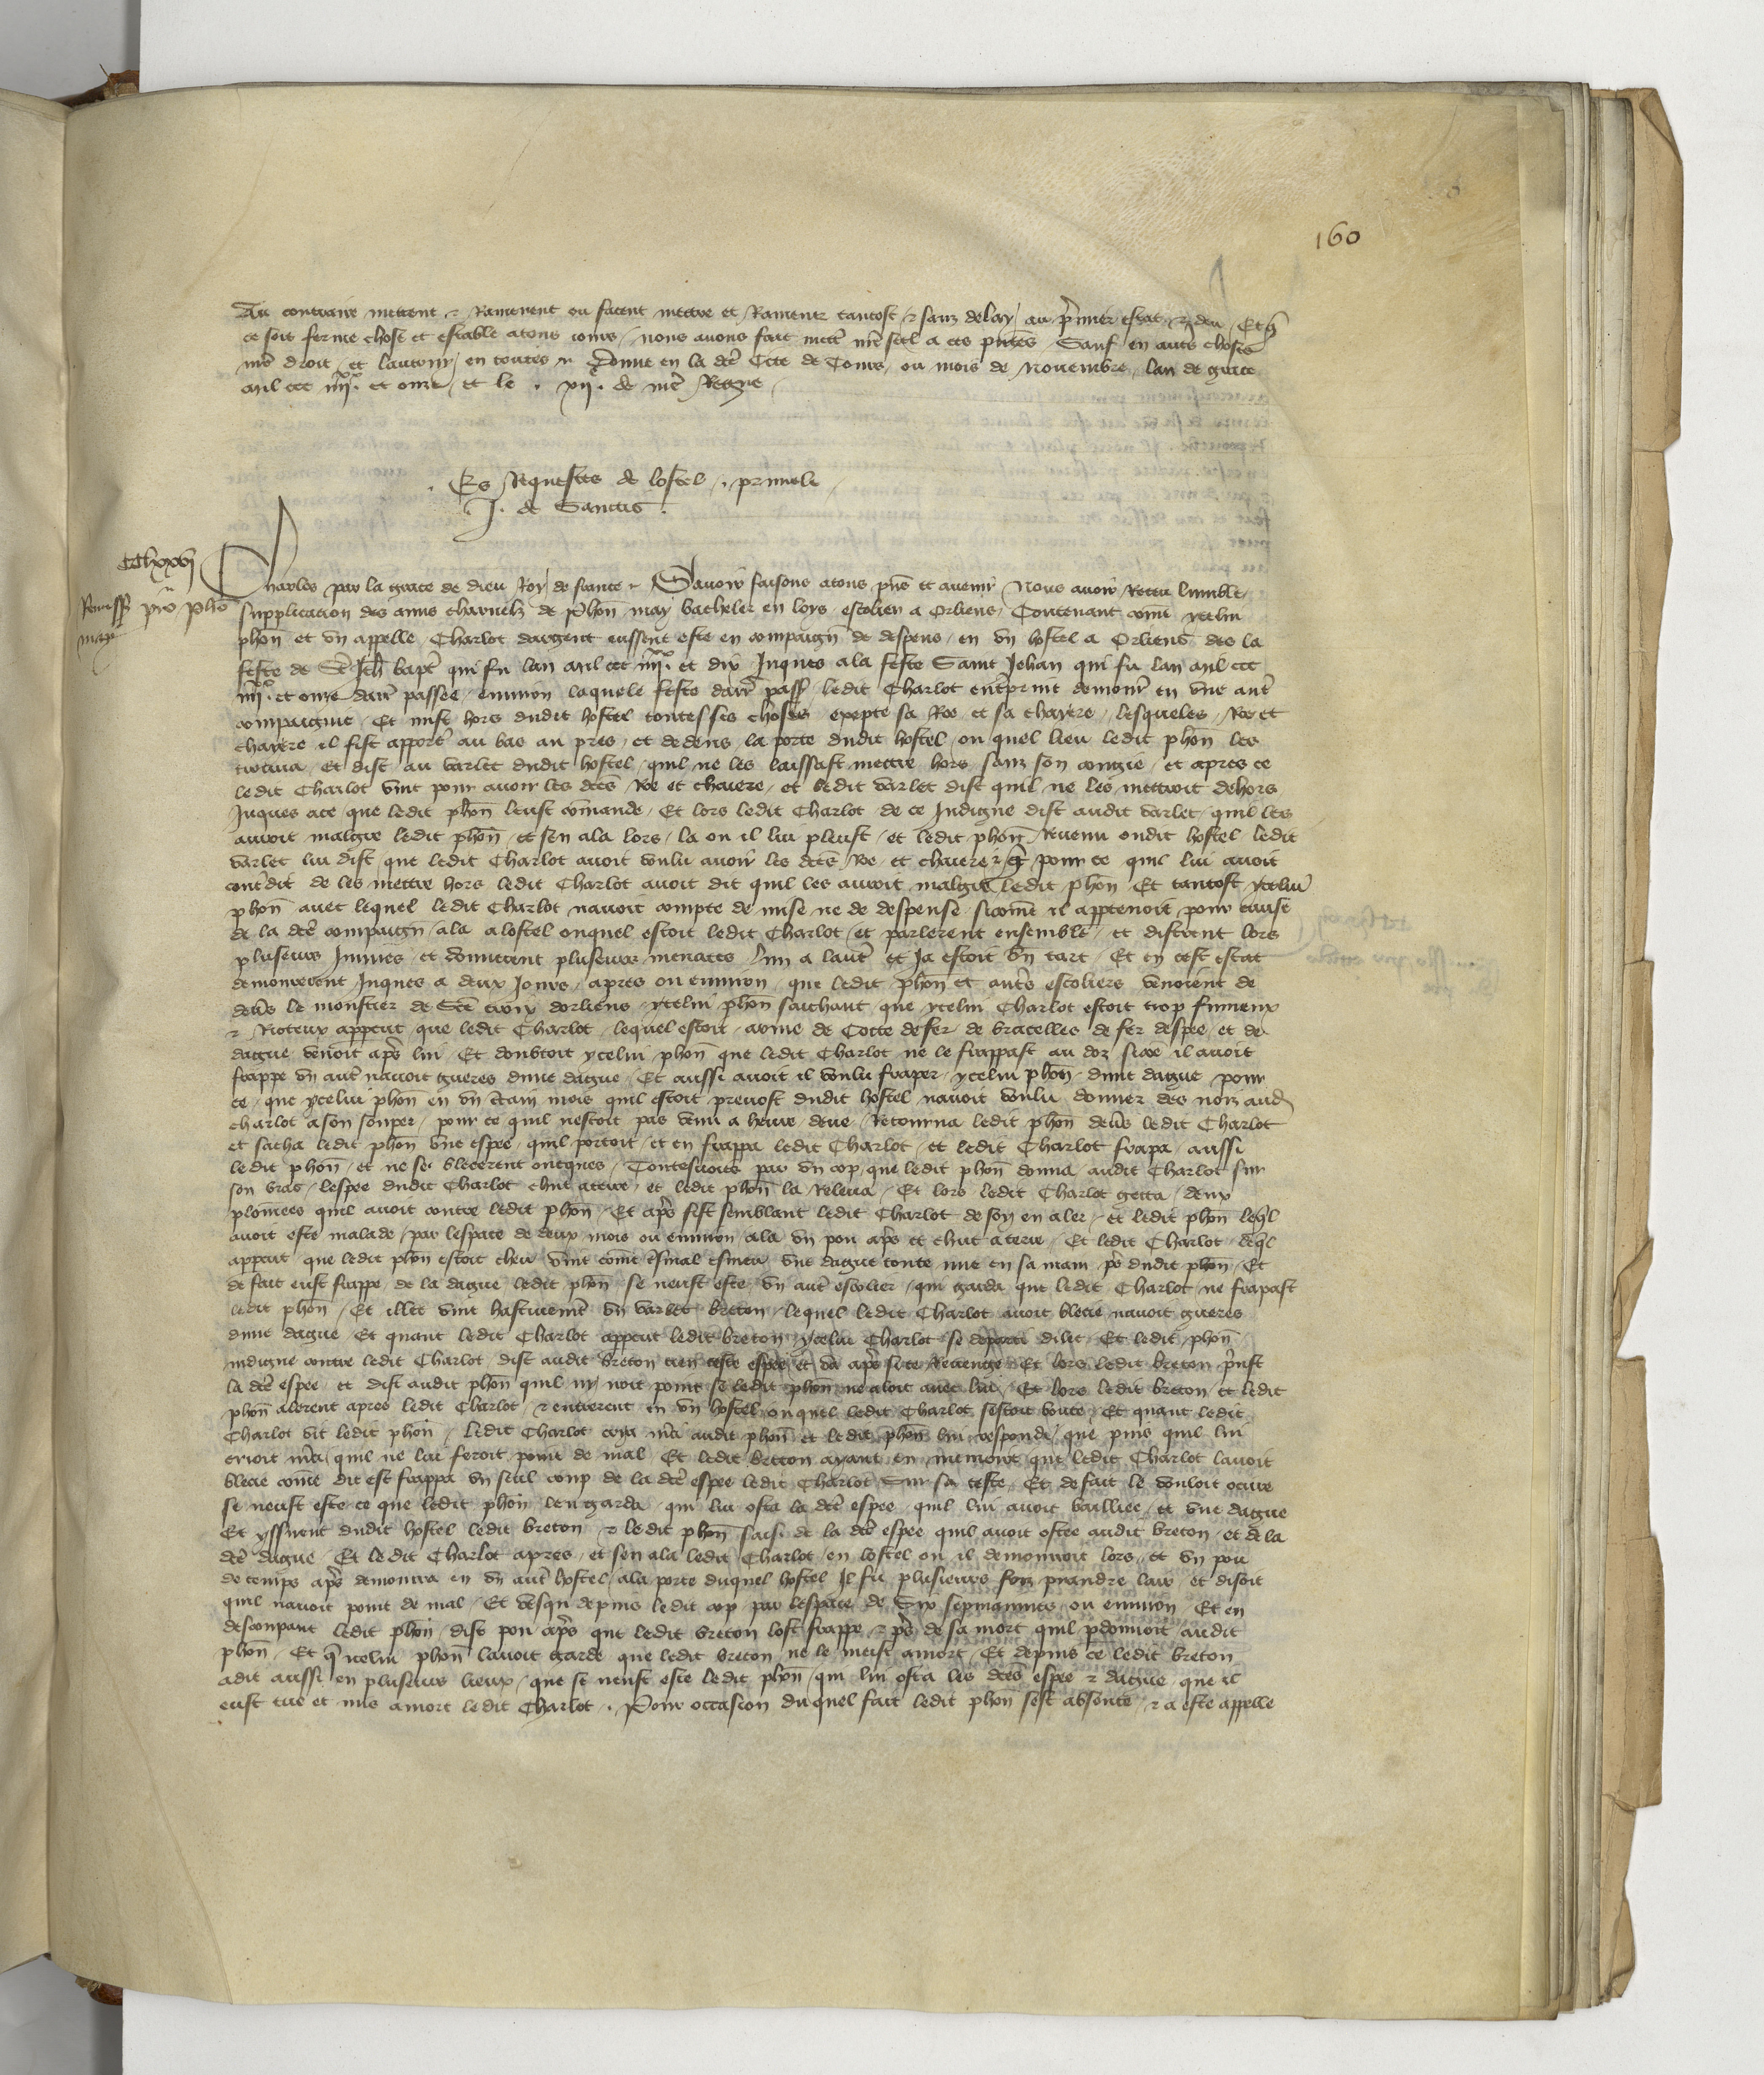 160
Au contraire mettent et Ramenent ou facent mettre et Ramener tantost et sanz delay au p̃mier estat et deu Et q̃
ce soit ferme chose et estable atous jours nous avons fait mett̃ nr̃e scel a ces pñtes Sauf en aut̃s choses
nr̃e droit et lautruy en toutes Donne en la dc̃e Cite de Tours ou mois de Novembre lan de grace
mil ccc iiii.xx et onze et le . xii . de nr̃e Regne
. Es Requestes de lostel .
J. de Sanctis .
Charles par la grace de dieu Roy de france Savoir faisons atous pñs et avenir Nous avoir Receu lumble
supplication des amis charnelz de phõn may bacheler en loys escolier a Orliens Contenant cõme ycelui
phõn et un appelle Charlot dargent eussent este en compaigñ de despens en un hostel a Orliens des la
feste de St̃ Jeh̃ bapt̃ qui fu lan mil ccc iiii.xx et dix Jusques ala feste Saint Jehan qui fu lan mil ccc
iiii.xx et onze darr̃ passee environ laquele feste darr̃ pass̃ ledit Charlot ent̃print demour̃ en une aut̃
compaignie Et mist hors dudit hostel toutes ses choses excepte sa Roe et sa chayere lesqueles Roe et
chayere il fist apport̃ au bas au pres et dedens la porte dudit hostel ou quel lieu ledit phõn les
trouva et dist au varlet dudit hostel quil ne les laissast mettre hors sanz son congie et apres ce
ledit Charlot vint pour avoir les dc̃es Roe et chaiere et ledit varlet dist quil ne les mettroit dehors
Jusques ace que ledit phõn leust cõmande Et lors ledit Charlot de ce Indigne dist audit varlet quil les
auroit malgre ledit phõn et sen ala lors la ou il lui pleust et ledit phõn Revenu oudit hostel ledit
varlet lui dist que ledit Charlot avoit voulu avoir les dc̃es Roe et chaiere et q̃ pour ce quil lui avoit
cont̃dit de les mettre hors ledit Charlot avoit dit quil les auroit malgre ledit phõn Et tantost ycelui
phõn avec lequel ledit Charlot navoit compte de mise ne de despense sicom̃e il appartenoit pour cause
de la dc̃e compaigñ ala alostel ouquel estoit ledit Charlot et parlerent ensemble et distrent lors
pluseurs Injures et donnerent pluseurs menaces lun a laut̃ et Ja estoit bñ tart Et en cest estat
demourerent Jusques a deux Jours apres ou environ que ledit phõn et aut̃s escoliers venoient de
dev̂s le monstier de Stẽ croix dorliens ycelui phõn saichant que ycelui Charlot estoit trop fumeux
et Rioteux apperçut que ledit Charlot lequel estoit arme de Cotte de fer de bracelles de fer despee et de
dague venoit ap̃s lui Et doubtoit ycelui phõn que ledit Charlot ne le frappast au doz sicõe il avoit
frappe un aut̃ navoit gueres dune dague Et aussi avoit il voulu fraper ycelui phõn dune dague pour
ce que ycelui phõn en un c̃tain mois quil estoit prevost dudit hostel navoit voulu donner des noiz aud̃
charlot a son souper pour ce quil nestoit pas venu a heure deue Retourna ledit phõn dev̂s ledit Charlot
et sacha ledit phõn une espee quil portoit et en frappa ledit Charlot et ledit Charlot frapa aussi
ledit phõn et ne se blecerent oncques Toutesvoies par un cop que ledit phõn donna audit Charlot sur
son bras lespee dudit Charlot chut aterre et ledit phõn la Releva Et lors ledit Charlot getta deux
plomees quil avoit contre ledit phõn Et ap̃s fist semblant ledit Charlot de soy en aler et ledit phõn leq̃l
avoit este malade par lespace de deux mois ou environ ala un pou ap̃s et chut aterre Et ledit Charlot
apperçut que ledit phõn estoit cheu vint com̃e esmeu une dague toute nue en sa main p̃s dudit phõn Et
de fait eust frappe de la dague ledit phõn se neust este un aut̃ escolier qui garda que ledit Charlot ne frapast
ledit phõn Et illec vint hastivemẽt un varlet breton lequel ledit Charlot avoit blecie navoit gueres
dune dague Et quant ledit Charlot apperçut ledit breton ycelui Charlot se departi dilec Et ledit phõn
indigne contre ledit Charlot dist audit breton tien ceste espee et va ap̃s si te Revenge Et lors ledit breton p̃nst
la dc̃e espee et dist audit phõn quil ny iroit point se ledit phõn ne aloit avec lui Et lors ledit breton et ledit
phõn alerent apres ledit Charlot et entrerent en un hostel ouquel ledit Charlot sestoit boute Et quant ledit
Charlot vit ledit phõn ledit Charlot crya m̃ci audit phõn et ledit phõn lui respondi que puis quil lui
crioit m̃ci quil ne lui feroit point de mal Et ledit breton ayant en memoire que ledit Charlot lavoit
blecie com̃e dit est frappa un seul coup de la dc̃e espee ledit Charlot sur sa teste Et de fait le vouloit occire
se neust este ce que ledit phõn len garda qui lui osta la dc̃e espee quil lui avoit bailliee et une dague
Et yssirent dudit hostel ledit breton et ledit phõn saisi de la dc̃e espee quil avoit ostee audit breton et de la
dc̃e dague Et ledit Charlot apres et sen ala ledit Charlot en lostel ou il demouroit lors et un pou
de temps ap̃s demoura en un aut̃ hostel ala porte duquel hostel il fu plusieurs foiz prandre lair et disoit
quil navoit point de mal Et vesqui depuis ledit cop par lespace de six sepmainnes ou environ Et en
descoupant ledit phõn dist pou ap̃s que ledit breton lost frappe et p̃s de sa mort quil p̃donnoit audit
phõn Et q̃ icelui phõn lavoit garde que ledit breton ne le meist amort Et depuis ce ledit breton
a dit aussi en pluseurs lieux que se neust este ledit phõn qui lui osta les dc̃es espee et dague que il
eust tue et mis amort ledit Charlot . Pour occasion duquel fait ledit phõn sest absente et a este appelle